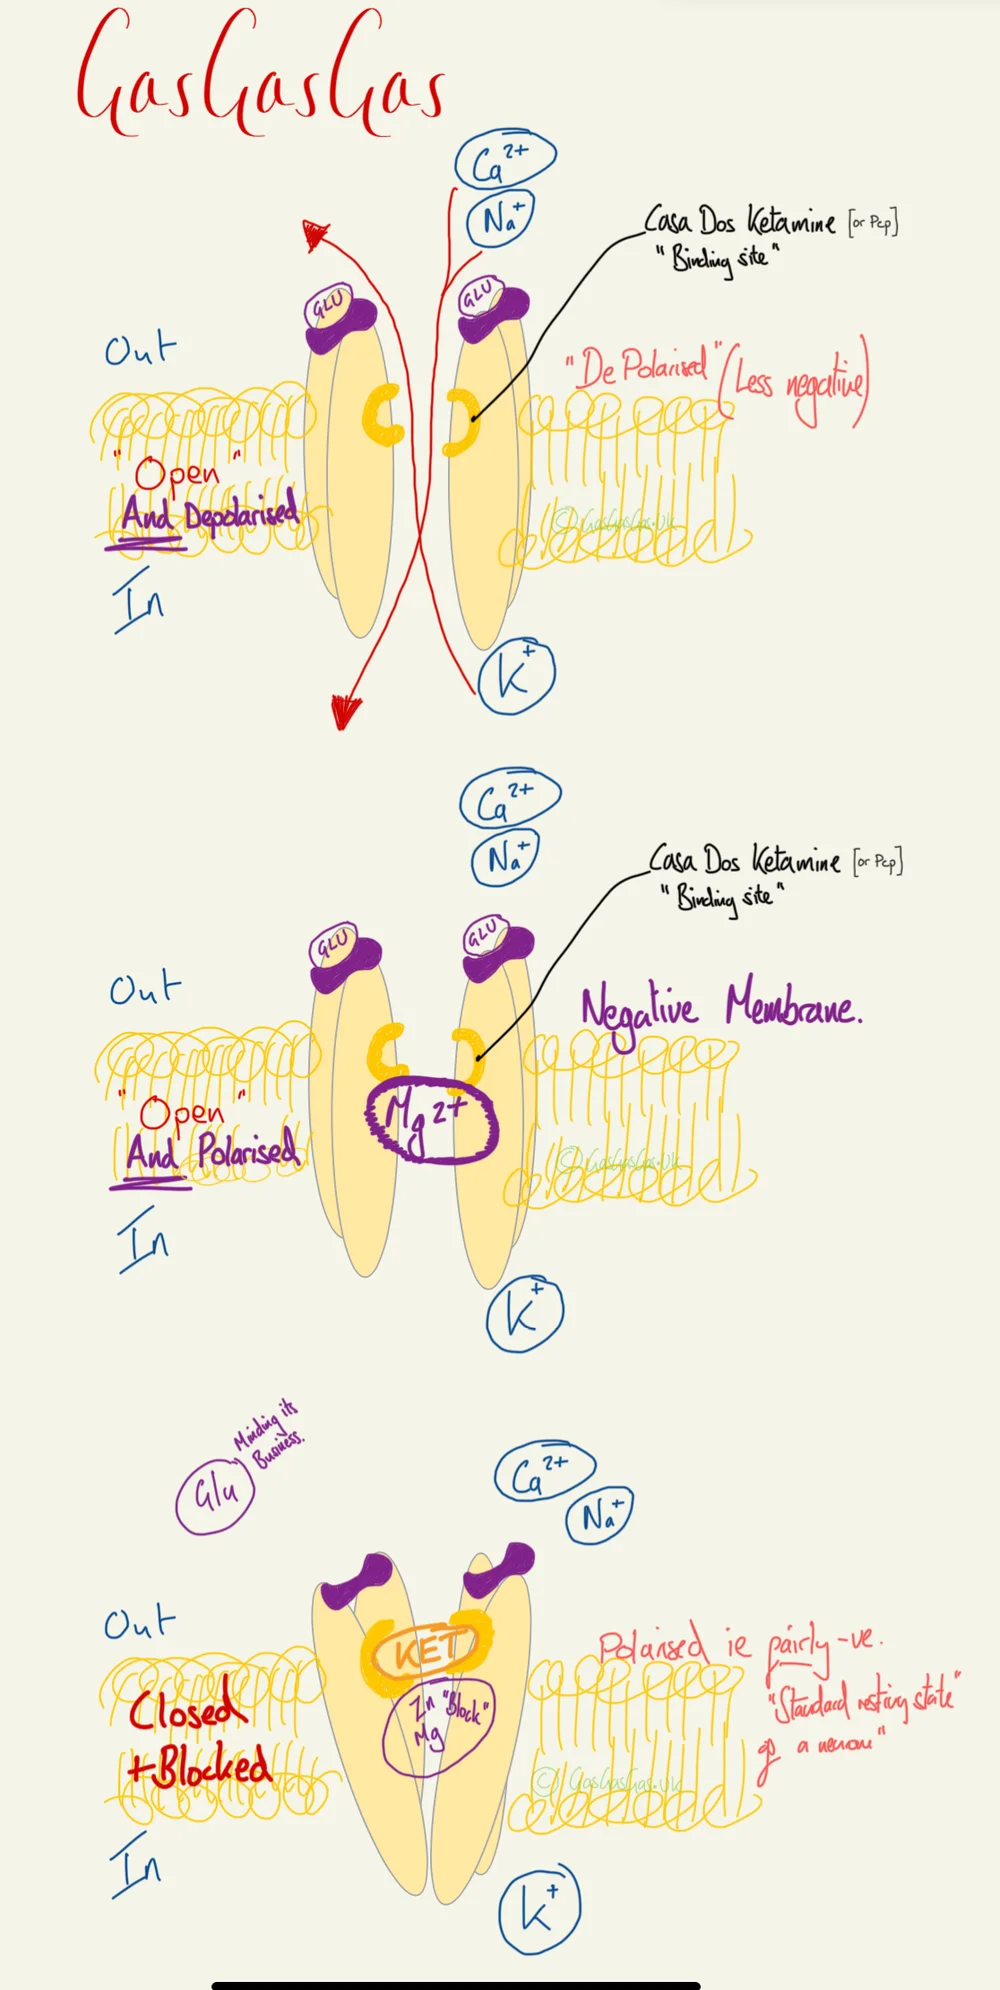 GasGasGas
Ca2+
Na+
Casa Dos Ketamine [or Pcp]
"Binding site"
GLU
GLU
Out
"DePolarised" (Less negative)
"Open"
And Depolarised
© GasGasGas.UK
In
K+
Ca2+
Na+
Casa Dos Ketamine [or Pcp]
"Binding site"
GLU
GLU
Out
Negative Membrane.
Mg2+
"Open"
And Polarised
© GasGasGas.UK
In
K+
Minding its
Business.
Glu
Ca2+
Na+
Out
KET
Polarised ie pairly -ve.
"Standard resting state"
of a neuron"
Zn "Block"
Mg
Closed
+Blocked
© GasGasGas.UK
In
K+